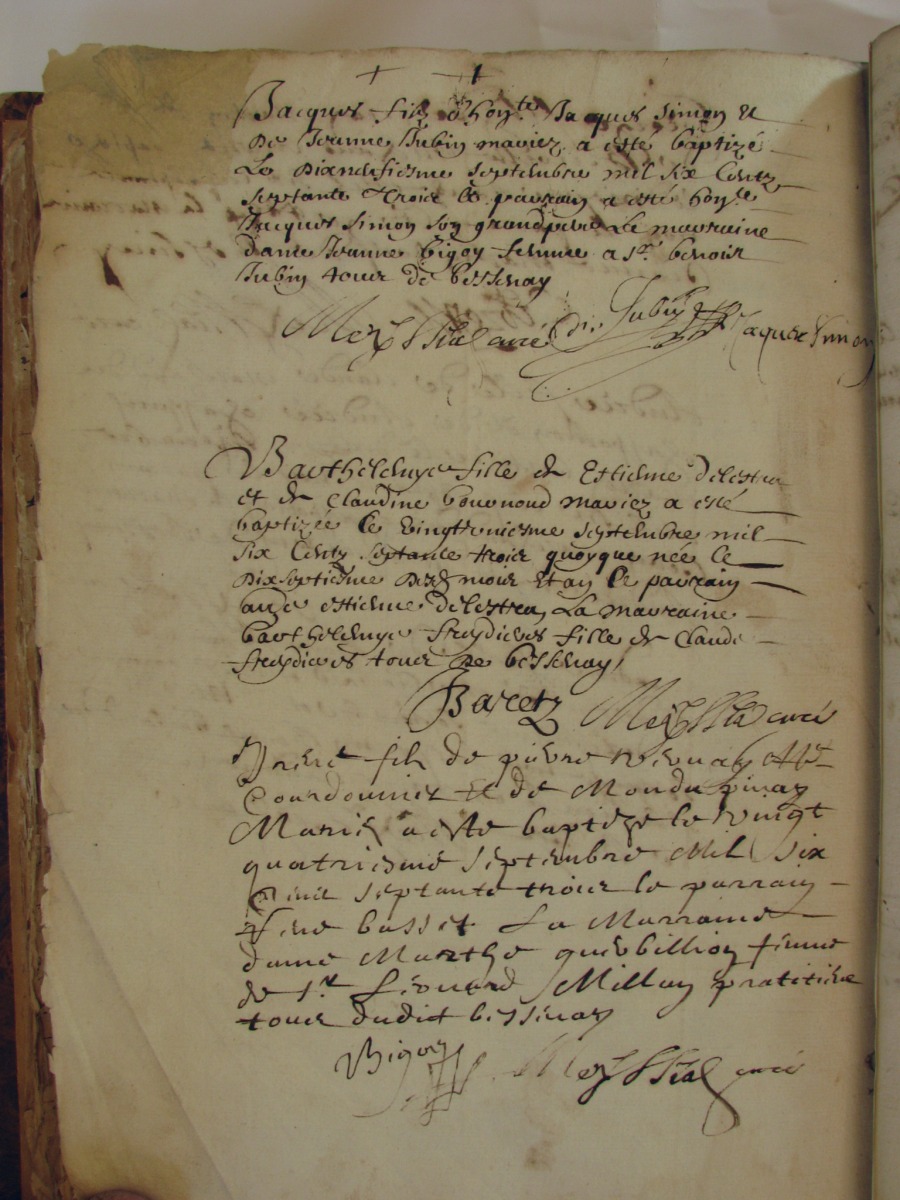 Jacques filz d'hon.te Jacques Simon et
de Jeanne Jubin mariez a esté baptizé
le dixneufiesme septembre mil six centz
septante trois le parrain a esté hon.te
Jacques Simon son grandpere la marraine
dame Jeanne Bigoy femme a s.r benoist
Jubin tous de bessenay
curé Jubin Jacques Simon
Barthelemye fille de Estienne delestra
et de Claudine bournoud mariez a esté
baptizée le vingtroiesme septembre mil
six centz septante trois quoyque née le
dixseptiesme desd mois et an le parrain
Estienne delestra, La marraine
barthelemye freydieres fille de Claude
freydieres tous de bessenay
Baretz curé
fils de pierre
Courdonnier et de
Mariés a este baptizé le vingt
quatriesme septembre Mil six
cent septante trois le parrain
basset La Marraine
dame Marthe femme
de s.r Leonard Millan praticien
tous dudit bessenay
Bigoy curé